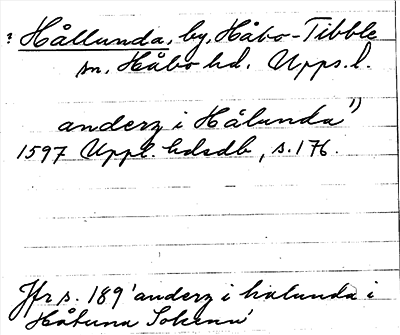 : Hållunda, by, Håbo-Tibble
sn. Håbo hd. Upps. l.
anderz i Hålunda 1)
1597 Uppl. hdsdb, s. 176.
Jfr s. 189 'anderz i halunda i
Håtuna Sokenn'